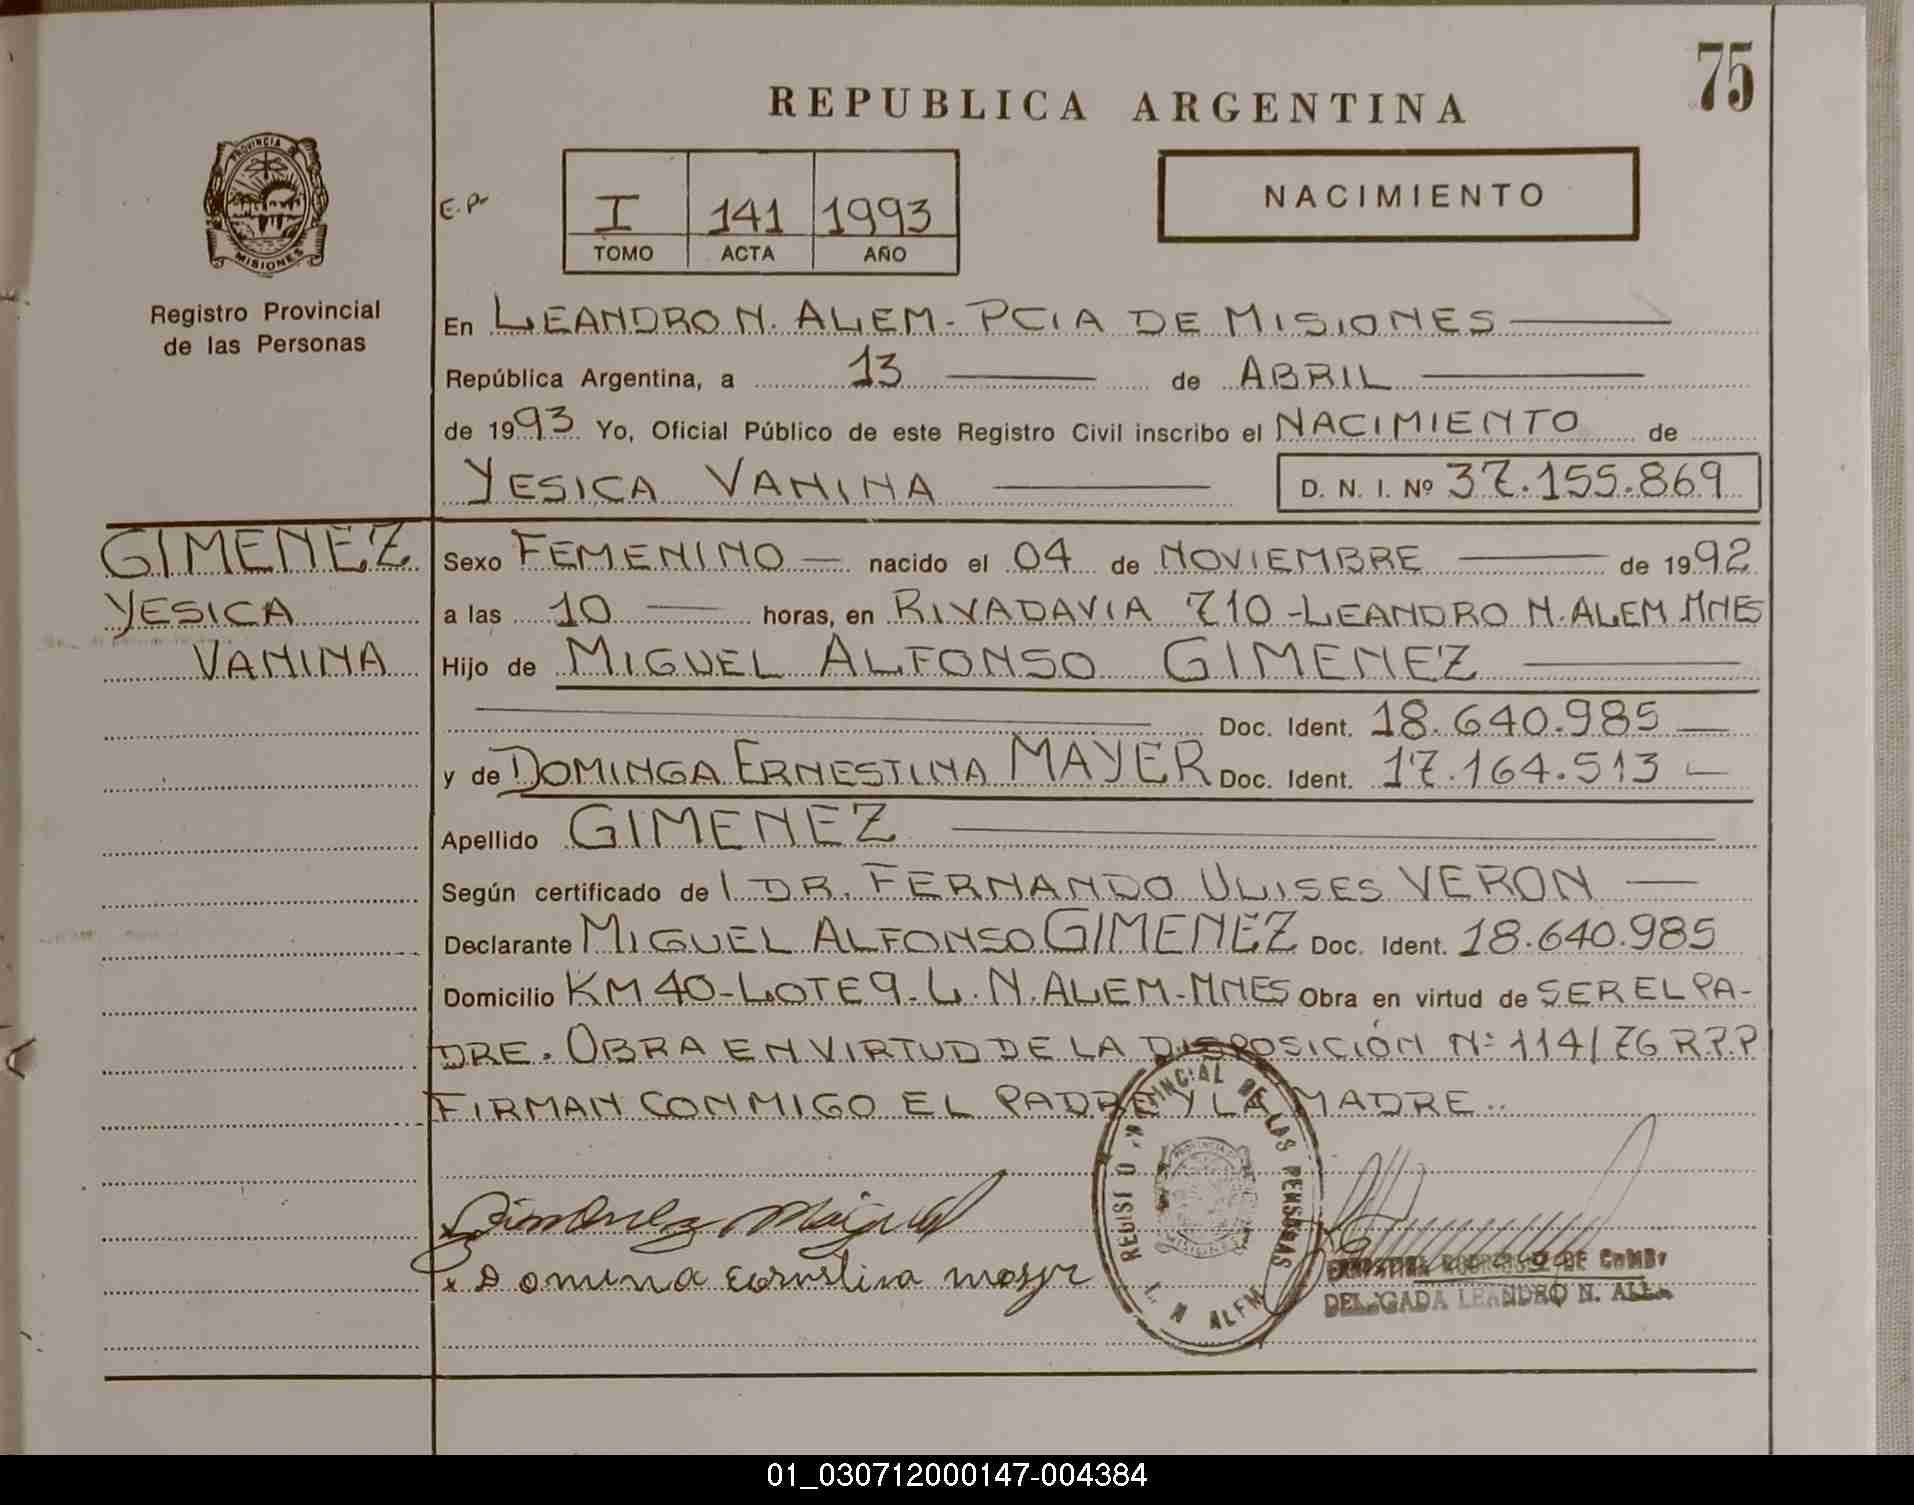 75
REPUBLICA ARGENTINA
PROVINCIA DE
MISIONES
Registro Provincial
de las Personas
E.P.
I 141 1993
TOMO ACTA AÑO
NACIMIENTO
En LEANDRO N. ALEM - PCIA DE MISIONES
República Argentina, a 13 de ABRIL
de 1993 Yo, Oficial Público de este Registro Civil inscribo el NACIMIENTO de
YESICA VANINA D. N. I. Nº 37.155.869
GIMENEZ
YESICA
VANINA
Sexo FEMENINO nacido el 04 de NOVIEMBRE de 1992
a las 10 horas, en RIVADAVIA 710 - LEANDRO N. ALEM MNES
Hijo de MIGUEL ALFONSO GIMENEZ
Doc. Ident. 18.640.985
y de DOMINGA ERNESTINA MAYER Doc. Ident. 17.164.513
Apellido GIMENEZ
Según certificado de l DR. FERNANDO ULISES VERON
Declarante MIGUEL ALFONSO GIMENEZ Doc. Ident. 18.640.985
Domicilio KM 40 - LOTE 9 - L. N. ALEM - MNES Obra en virtud de SER EL PA-
DRE. OBRA EN VIRTUD DE LA DISPOSICIÓN Nº 114/76 R.P.P
FIRMAN CONMIGO EL PADRE Y LA MADRE..
Gimenez Miguel
x Domina Ernestina mayer
DE LAS PERSONAS
L. N ALEM
DELEGADA LEANDRO N. ALEM
01_030712000147-004384